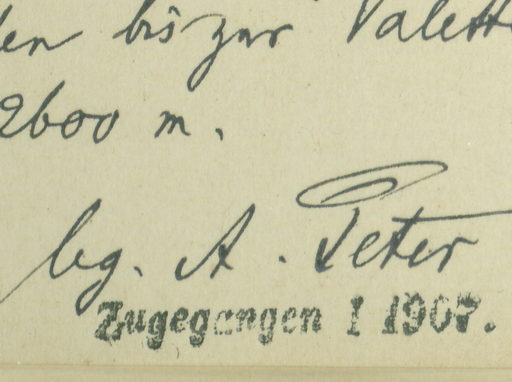 bis zur Valett
2600 m.
lg. A. Peter
Zugegangen I 1907.